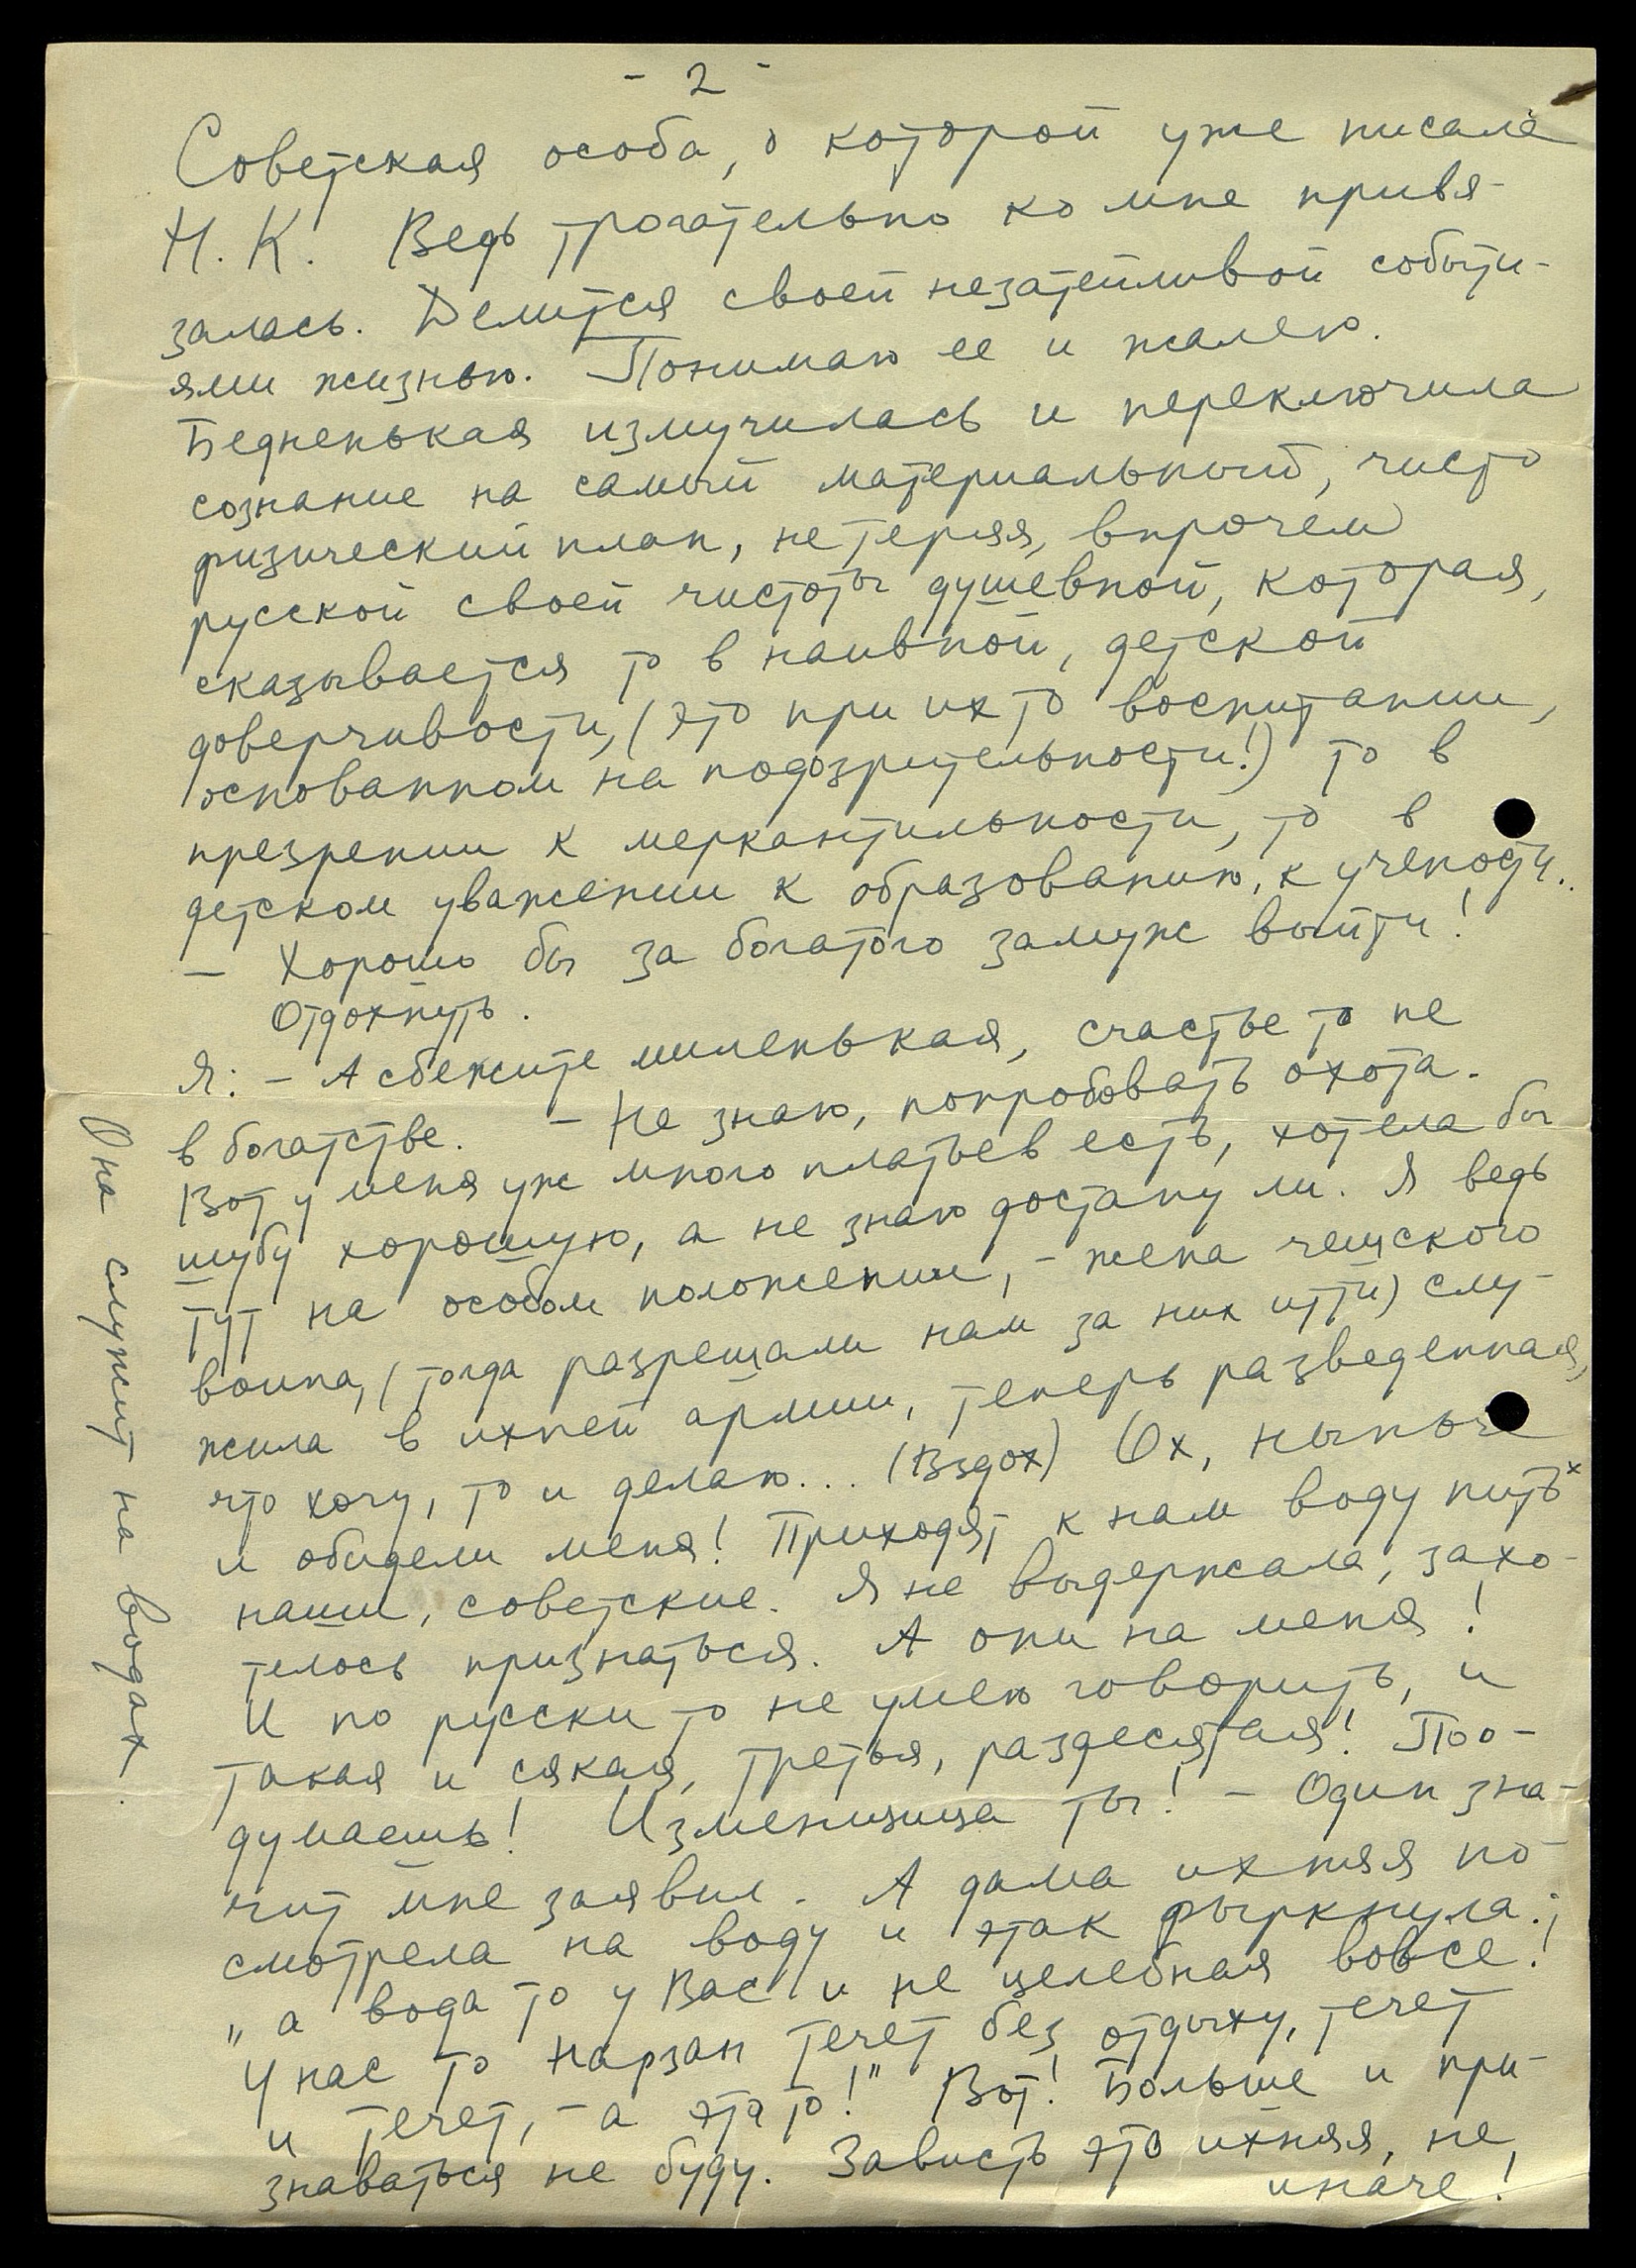 - 2 -
Советская особа, о которой уже писала
Н. К. Ведь трогательно ко мне привя-
залась. Делится своей незатейливой событи-
ями жизнью. Понимаю ее и жалею.
Бедненькая измучилась и переключила
сознание на самый материальный, чисто
физический план, не теряя, впрочем
русской своей чистоты душевной, которая,
сказывается то в наивной, детской
доверчивости, (это при их то воспитании,
основанном на подозрительности!) то в
презрении к меркантильности, то в
детском уважении к образованию, к учености..
— Хорошо бы за богатого замуж выйти!
Отдохнуть.
Я: – А сбежите миленькая, счастье то не
в богатстве. – Не знаю, попробовать охота.
Вот у меня уж много платьев есть, хотела бы
шубу хорошую, а не знаю достану ли. Я ведь
тут на особом положении, – жена чешского
воина, (тогда разрешали нам за них итти) слу-
жила в ихней армии, теперь разведенная,
что хочу, то и делаю... (Вздох) Ох, нынче
и обидели меня! Приходят к нам воду пить x
наши, советские. Я не выдержала, захо-
телось признаться. А они на меня!
И по русски то не умею говорить, и
такая и сякая, третья, раздесятая! Поо-
думаешь! Изменщица ты! – Один зна-
чит мне заявил. А дама ихняя по
смотрела на воду и этак фыркнула:
„а вода то у Вас и не целебная вовсе!
У нас то Нарзан течет без отдыху, течет
и течет, – а эта то!" Вот! Больше и при-
знаваться не буду. Зависть это ихняя, не
иначе!
Она служит на водах.